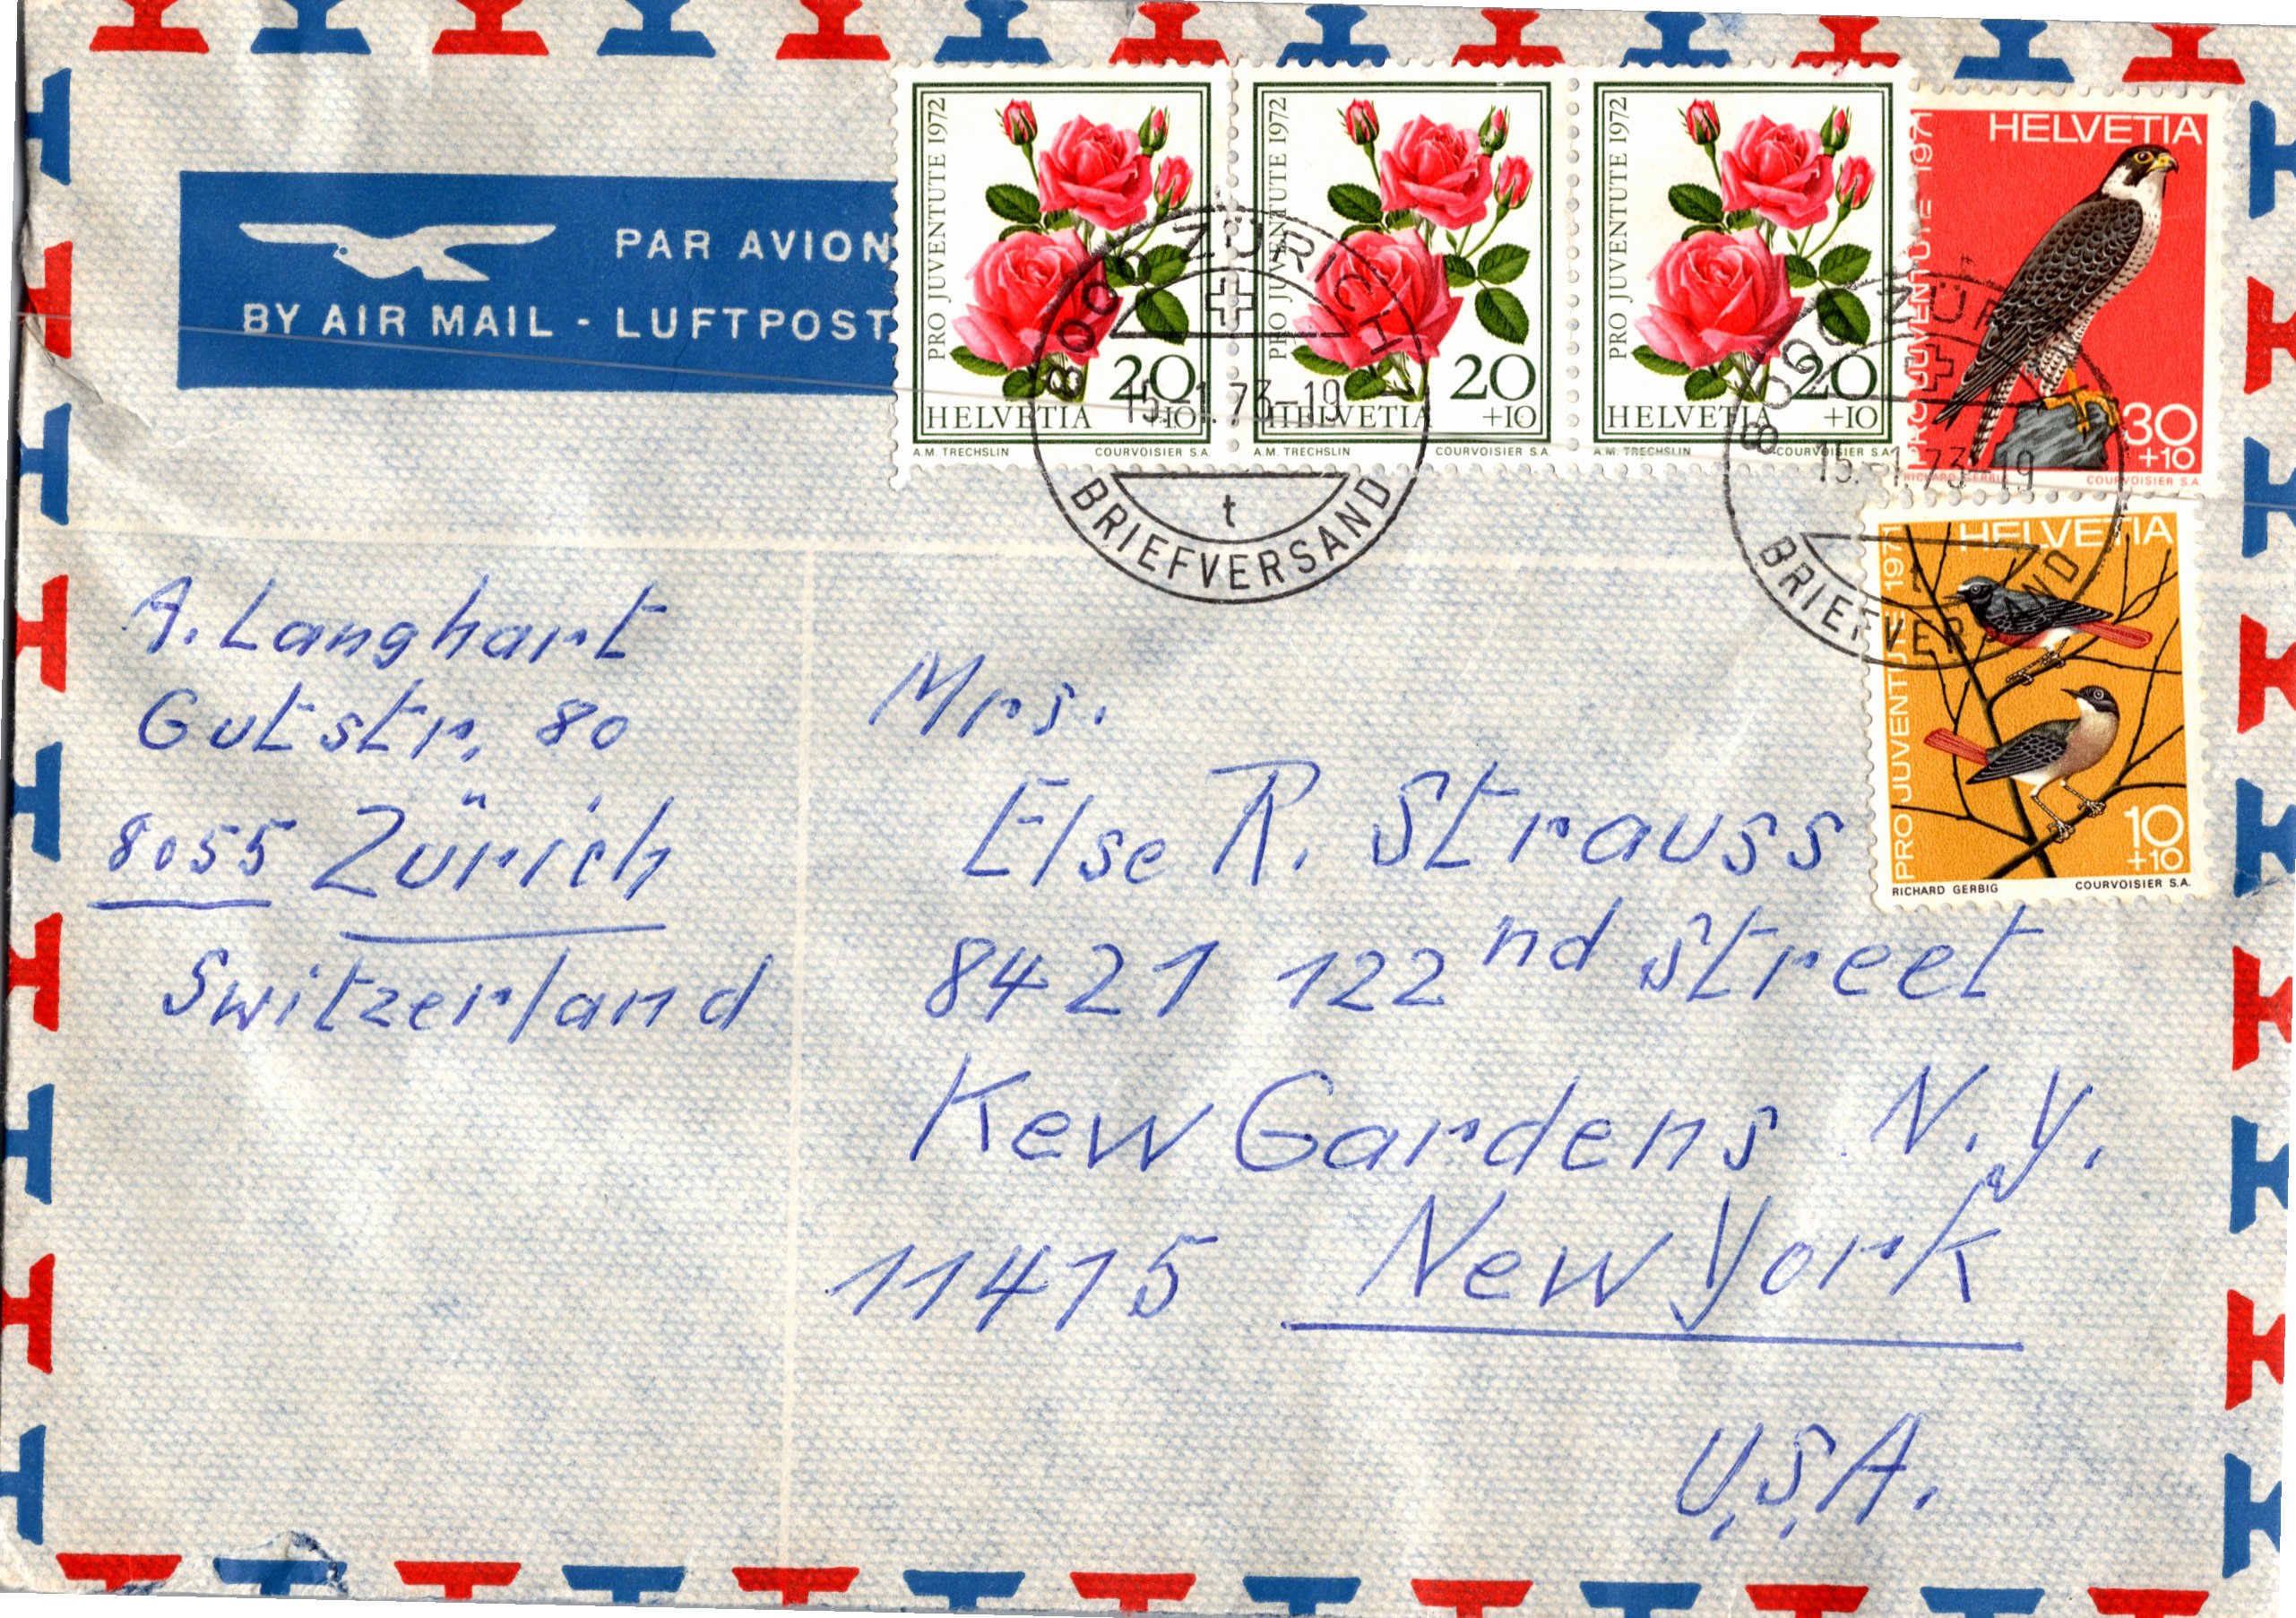 PAR AVION
BY AIR MAIL - LUFTPOST
PRO JUVENTUTE 1972
20
+10
HELVETIA
A.M. TRECHSLIN COURVOISIER S.A.
PRO JUVENTUTE 1972
20
+10
HELVETIA
A.M. TRECHSLIN COURVOISIER S.A.
PRO JUVENTUTE 1972
20
+10
HELVETIA
A.M. TRECHSLIN COURVOISIER S.A.
HELVETIA
PRO JUVENTUTE 1971
30
+10
RICHARD GERBIG COURVOISIER S.A.
HELVETIA
PRO JUVENTUTE 1971
10
+10
RICHARD GERBIG COURVOISIER S.A.
ZÜRICH
15.-1.73-19
t
BRIEFVERSAND
15.-1.73-19
A. Langhart
Gutstr. 80
8055 Zürich
Switzerland
Mrs.
Else R. Strauss
8421 122nd Street
Kew Gardens N.Y.
11415 New York
U.S.A.